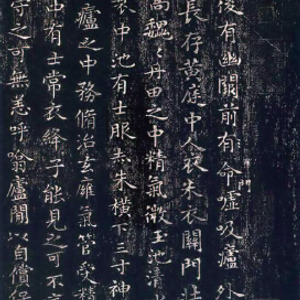 後有幽闕前有命噓吸廬外
長存黄庭中人衣朱衣關門壯
高魏〻丹田之中精氣微玉池清水
衰中池有士服赤朱橫下三寸神
廬之中務脩治玄雍氣管受精
中有士常衣絳子能見之可不
守之可無恙呼噏廬間以自償保